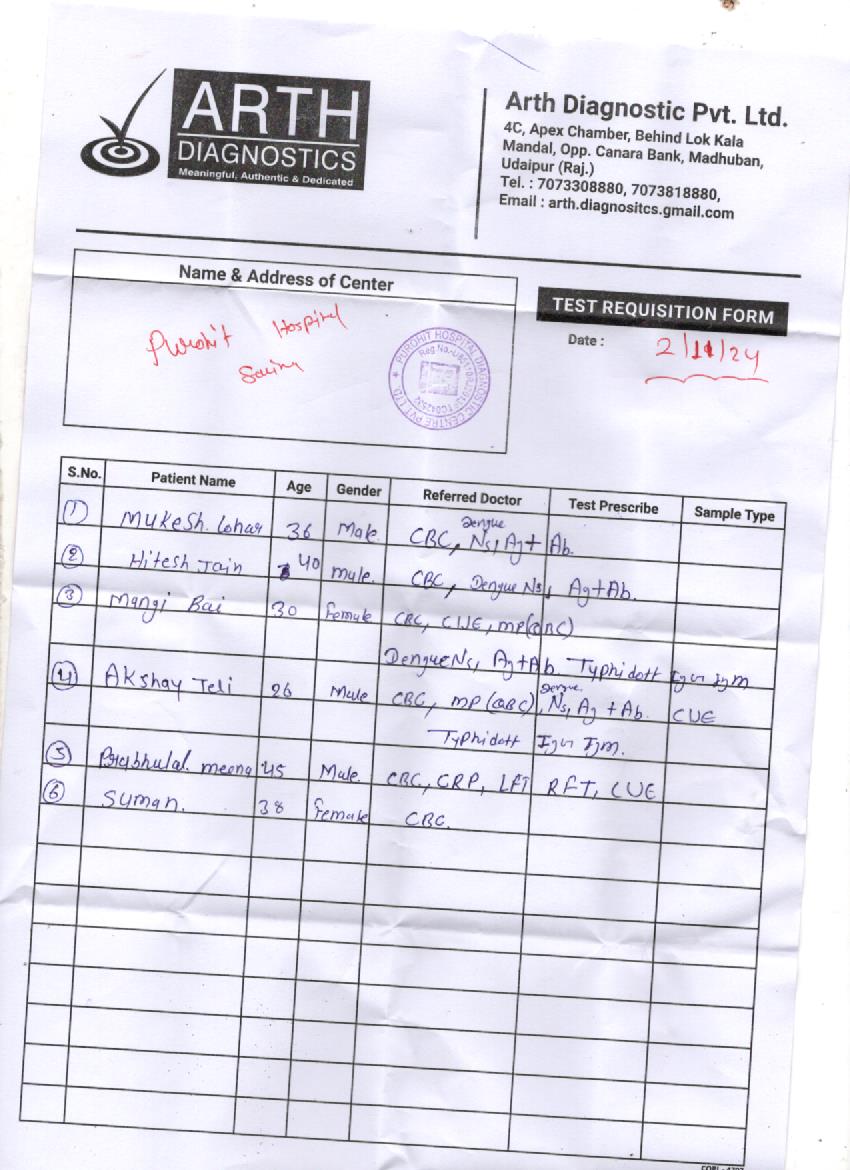 ARTH
DIAGNOSTICS
Meaningful, Authentic & Dedicated
Arth Diagnostic Pvt. Ltd.
4C, Apex Chamber, Behind Lok Kala
Mandal, Opp. Canara Bank, Madhuban,
Udaipur (Raj.)
Tel. : 7073308880, 7073818880,
Email : arth.diagnositcs.gmail.com
Name & Address of Center
Purohit Hospital
TEST REQUISITION FORM
Date : 2/11/24
PUROHIT HOSPITAL DIAGNOSTIC CENTRE PVT LTD.
S.No. Patient Name Age Gender Referred Doctor Test Prescribe Sample Type
1 Mukesh. Lohar 36 Male CBC, Dengue Ns, Ag + Ab.
2 Hitesh Jain 40 Male. CBC, Dengue Ns, Ag+Ab.
3 Mangi Bai 30 Female CBC, CUE, MP(QBC)
Dengue Ns, Ag+Ab Typhidott IgG IgM
4 Akshay Teli 26 Male CBC, MP (QBC), Dengue Ns, Ag + Ab. CUE
Typhidott IgG IgM.
5 Prabhulal. meena 45 Male. CBC, CRP, LFT RFT, CUE
6 Suman. 38 Female CBC.